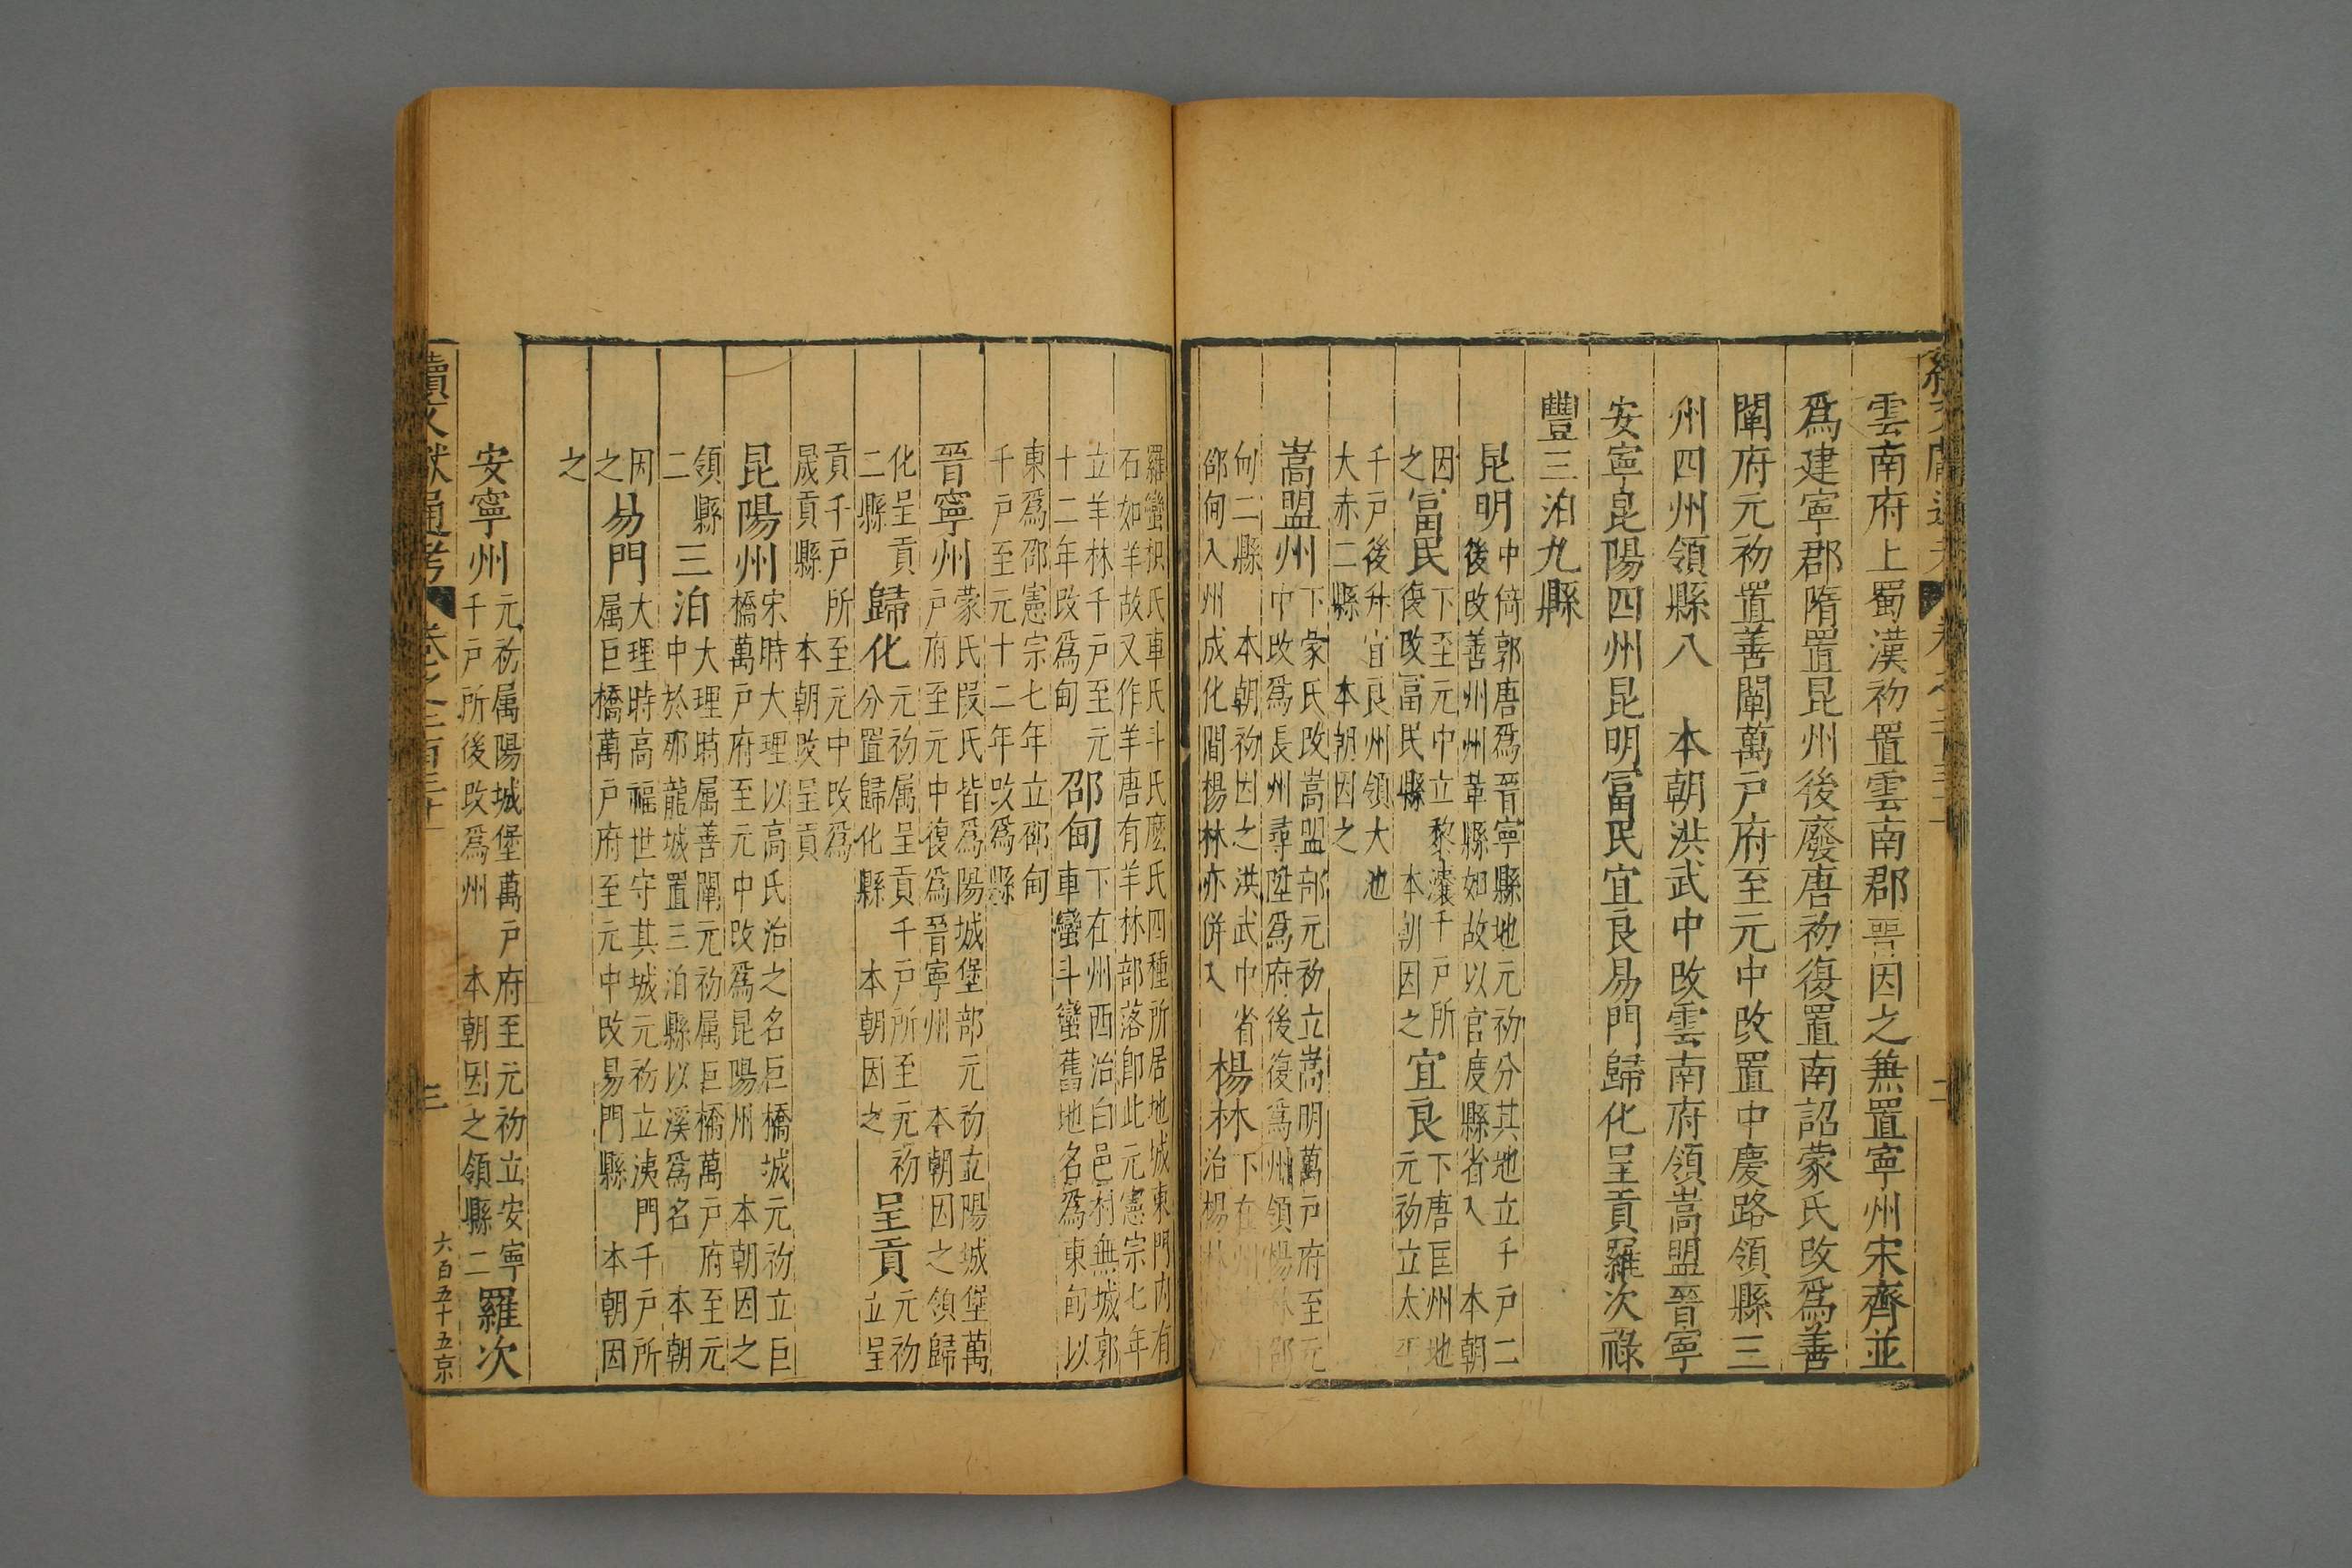 雲南府上蜀漢初置雲南郡晉因之兼置寧州宋齊並
爲建寧郡隋置昆州後廢唐初復置南詔蒙氏改爲善
闡府元初置善闡萬戶府至元中改置中慶路領縣三
州四州領縣八 本朝洪武中改雲南府領嵩盟晉寧
安寧昆陽四州昆明富民宜良易門歸化呈貢羅次祿
豐三泊九縣
昆明中倚郭唐爲晉寧縣地元初分其地立千戶二
後改善州州革縣如故以官度縣省入 本朝
因之富民下至元中立黎瀼千戶所
復改富民縣 本朝因之宜良下唐匡州地
元初立太
千戶後升宜良州領大池
大赤二縣 本朝因之
嵩盟州下蒙氏改嵩盟部元初立嵩明萬戶府至元
中改爲長州尋陞爲府後復爲州領楊林邵
甸二縣 本朝初因之洪武中省
邵甸入州成化間楊林亦併入楊林下在州
治楊林
羅蠻枳氏車氏斗氏麽氏四種所居地城東門內有
石如羊故又作羊唐有羊林部落卽此元憲宗七年
立羊林千戶至元
十二年改爲甸邵甸下在州西治白邑村無城郭
車蠻斗蠻舊地名爲東甸以
東爲邵憲宗七年立邵甸
千戶至元十二年改爲縣
晉寧州蒙氏叚氏皆爲陽城堡部元初立陽城堡萬
戶府至元中復爲晉寧州 本朝因之領歸
化呈貢
二縣歸化元初属呈貢千戶所至元初
分置歸化縣 本朝因之呈貢元初
立呈
貢千戶所至元中改爲
晟貢縣 本朝改呈貢
昆陽州宋時大理以高氏治之名巨橋城元初立巨
橋萬戶府至元中改爲昆陽州 本朝因之
領縣
二三泊大理時属善闡元初属巨橋萬戶府至元
中於那龍城置三泊縣以溪爲名 本朝
因
之易門大理時高福世守其城元初立洟門千戶所
属巨橋萬戶府至元中改易門縣 本朝因
之
安寧州元初属陽城堡萬戶府至元初立安寧
千戶所後改爲州 本朝因之領縣二羅次
續文獻通考
三
六百五十五京